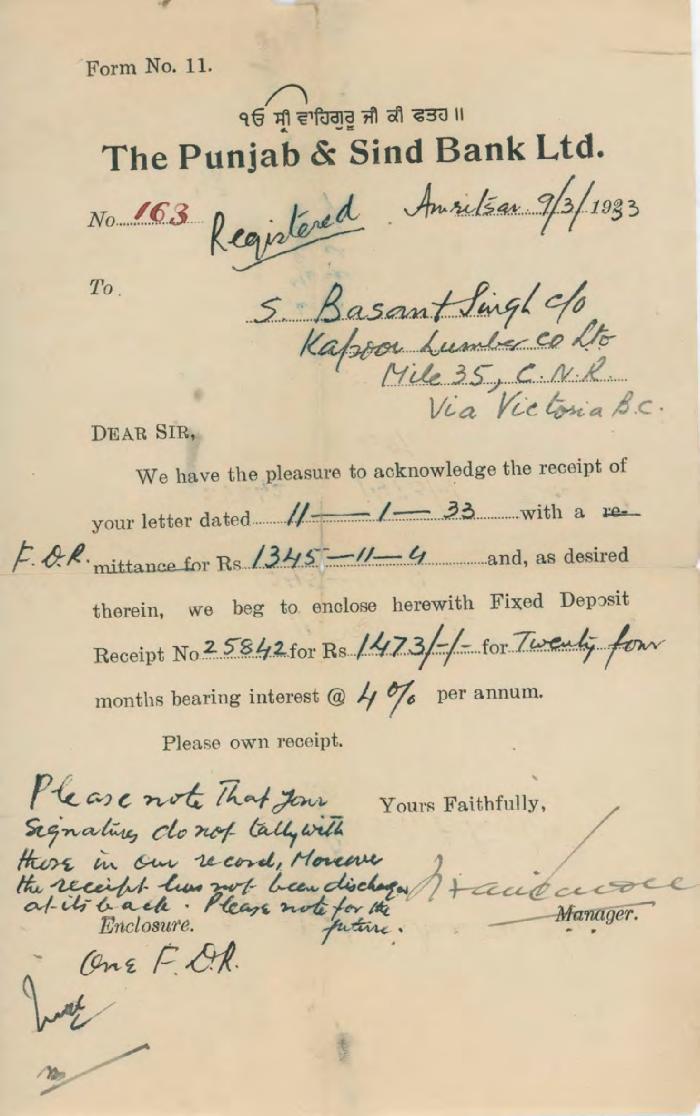 Form No. 11.
੧ਓ ਸ੍ਰੀ ਵਾਹਿਗੁਰੂ ਜੀ ਕੀ ਫਤਹ ॥
The Punjab & Sind Bank Ltd.
No 163 Registered Amritsar 9/3/1933
To
S. Basant Singh c/o
Kapoor Lumber Co Ltd
Mile 35, C.N.R.
Via Victoria B.C.
DEAR SIR,
We have the pleasure to acknowledge the receipt of
your letter dated 11—1—33 with a re-
F.D.R. mittance for Rs 1345—11—4 and, as desired
therein, we beg to enclose herewith Fixed Deposit
Receipt No 25842 for Rs 1473/-/- for Twenty four
months bearing interest @ 4% per annum.
Please own receipt.
Please note that your
Signatures do not tally with
those in our record, Moreover
the receipt has not been discharged
at its back. Please note for the
future.
Yours Faithfully,
Manager.
Enclosure.
One F.D.R.